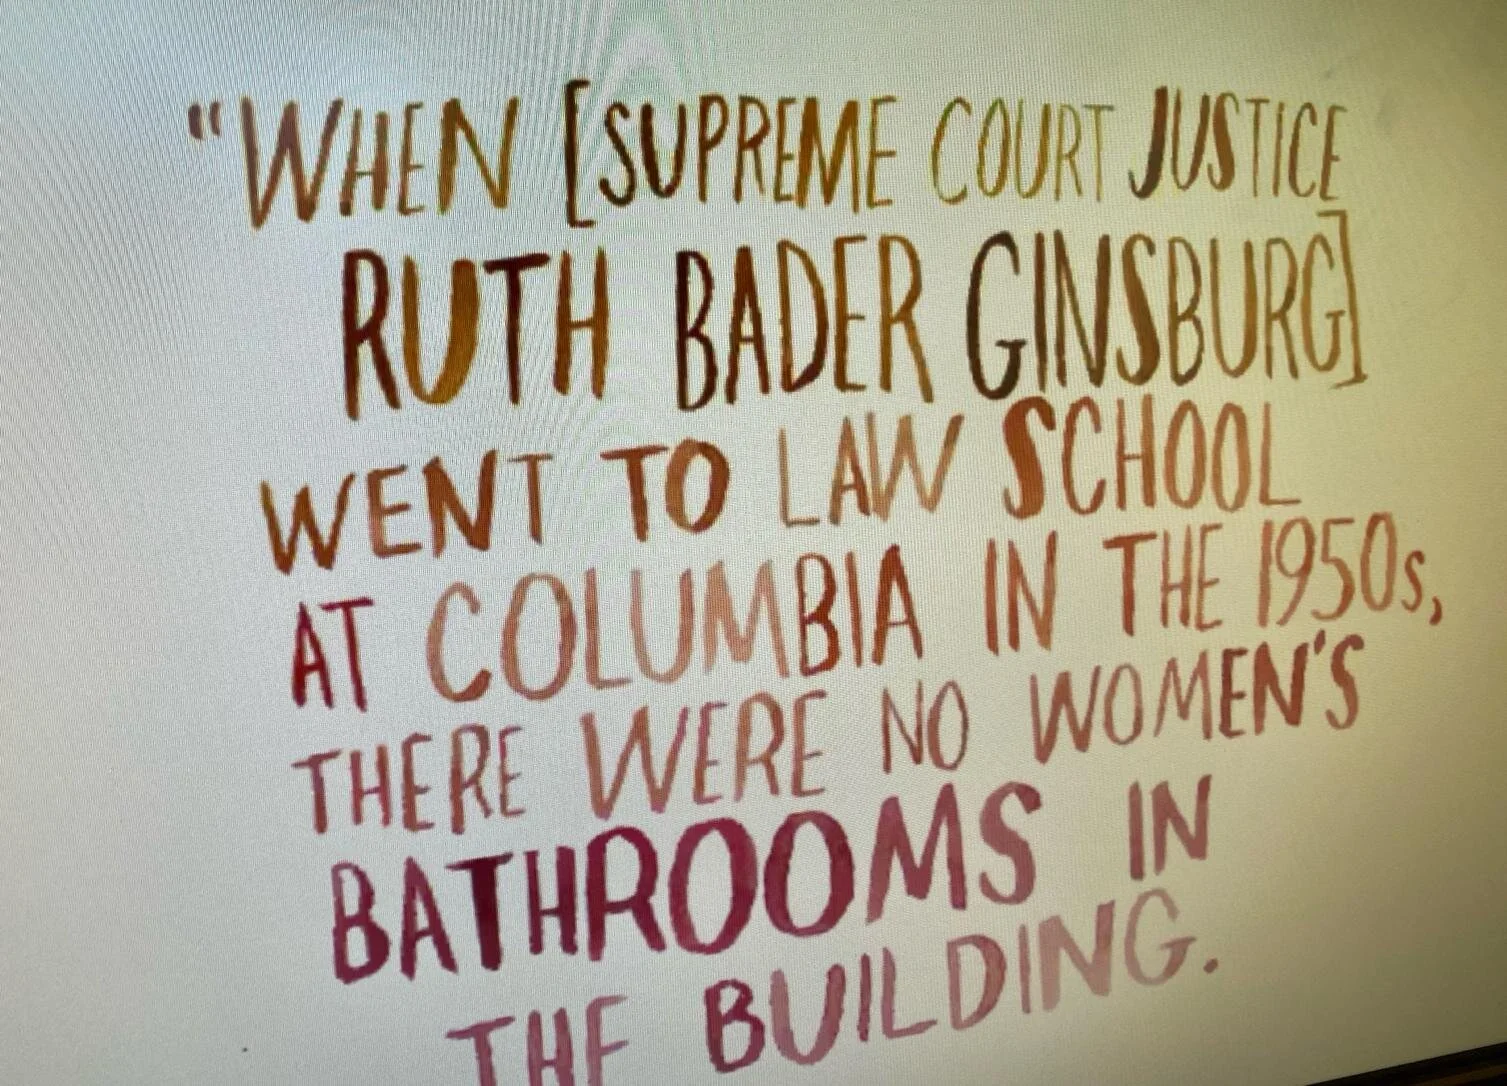 "WHEN [SUPREME COURT JUSTICE
RUTH BADER GINSBURG]
WENT TO LAW SCHOOL
AT COLUMBIA IN THE 1950s,
THERE WERE NO WOMEN'S
BATHROOMS IN
THE BUILDING.